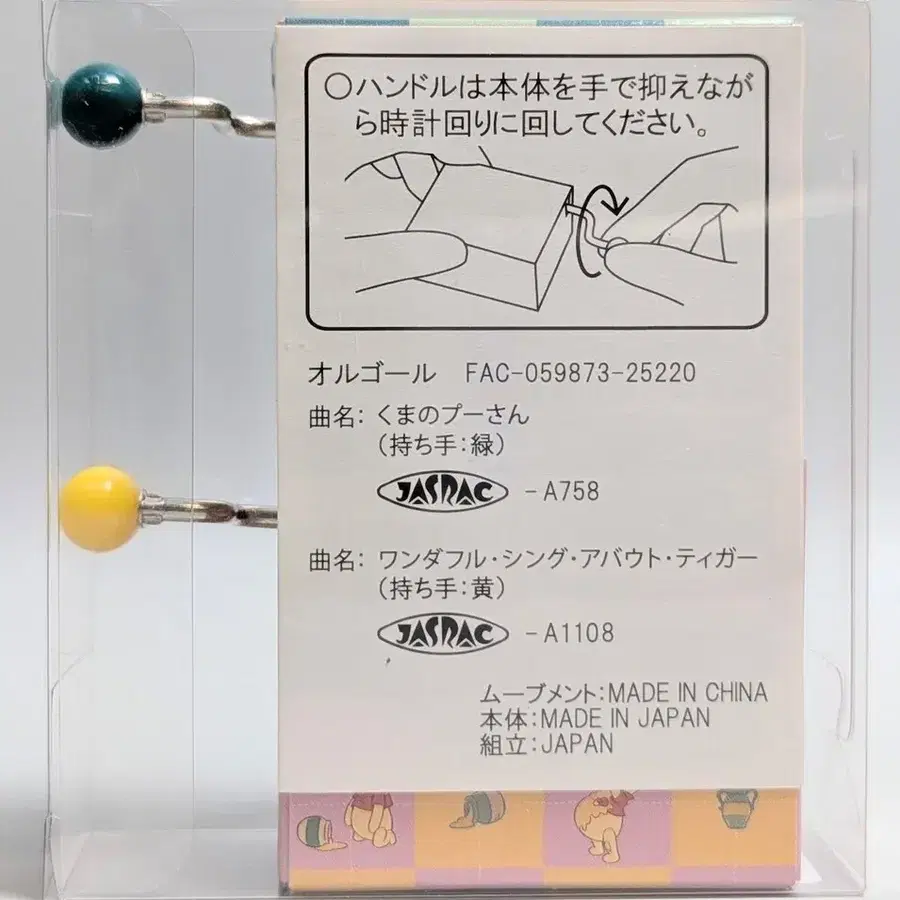 ○ハンドルは本体を手で抑えなが
ら時計回りに回してください。
オルゴール FAC-059873-25220
曲名: くまのプーさん
(持ち手:緑)
JASRAC -A758
曲名: ワンダフル・シング・アバウト・ティガー
(持ち手:黄)
JASRAC -A1108
ムーブメント:MADE IN CHINA
本体:MADE IN JAPAN
組立:JAPAN